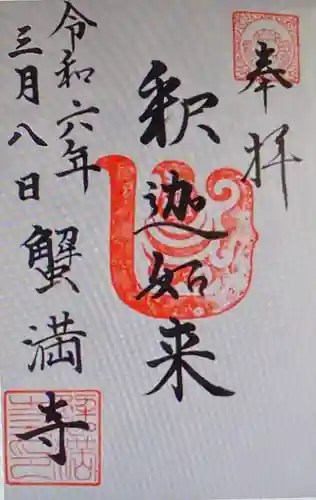 奉拝
釈迦如来
令和六年
三月八日
蟹満寺